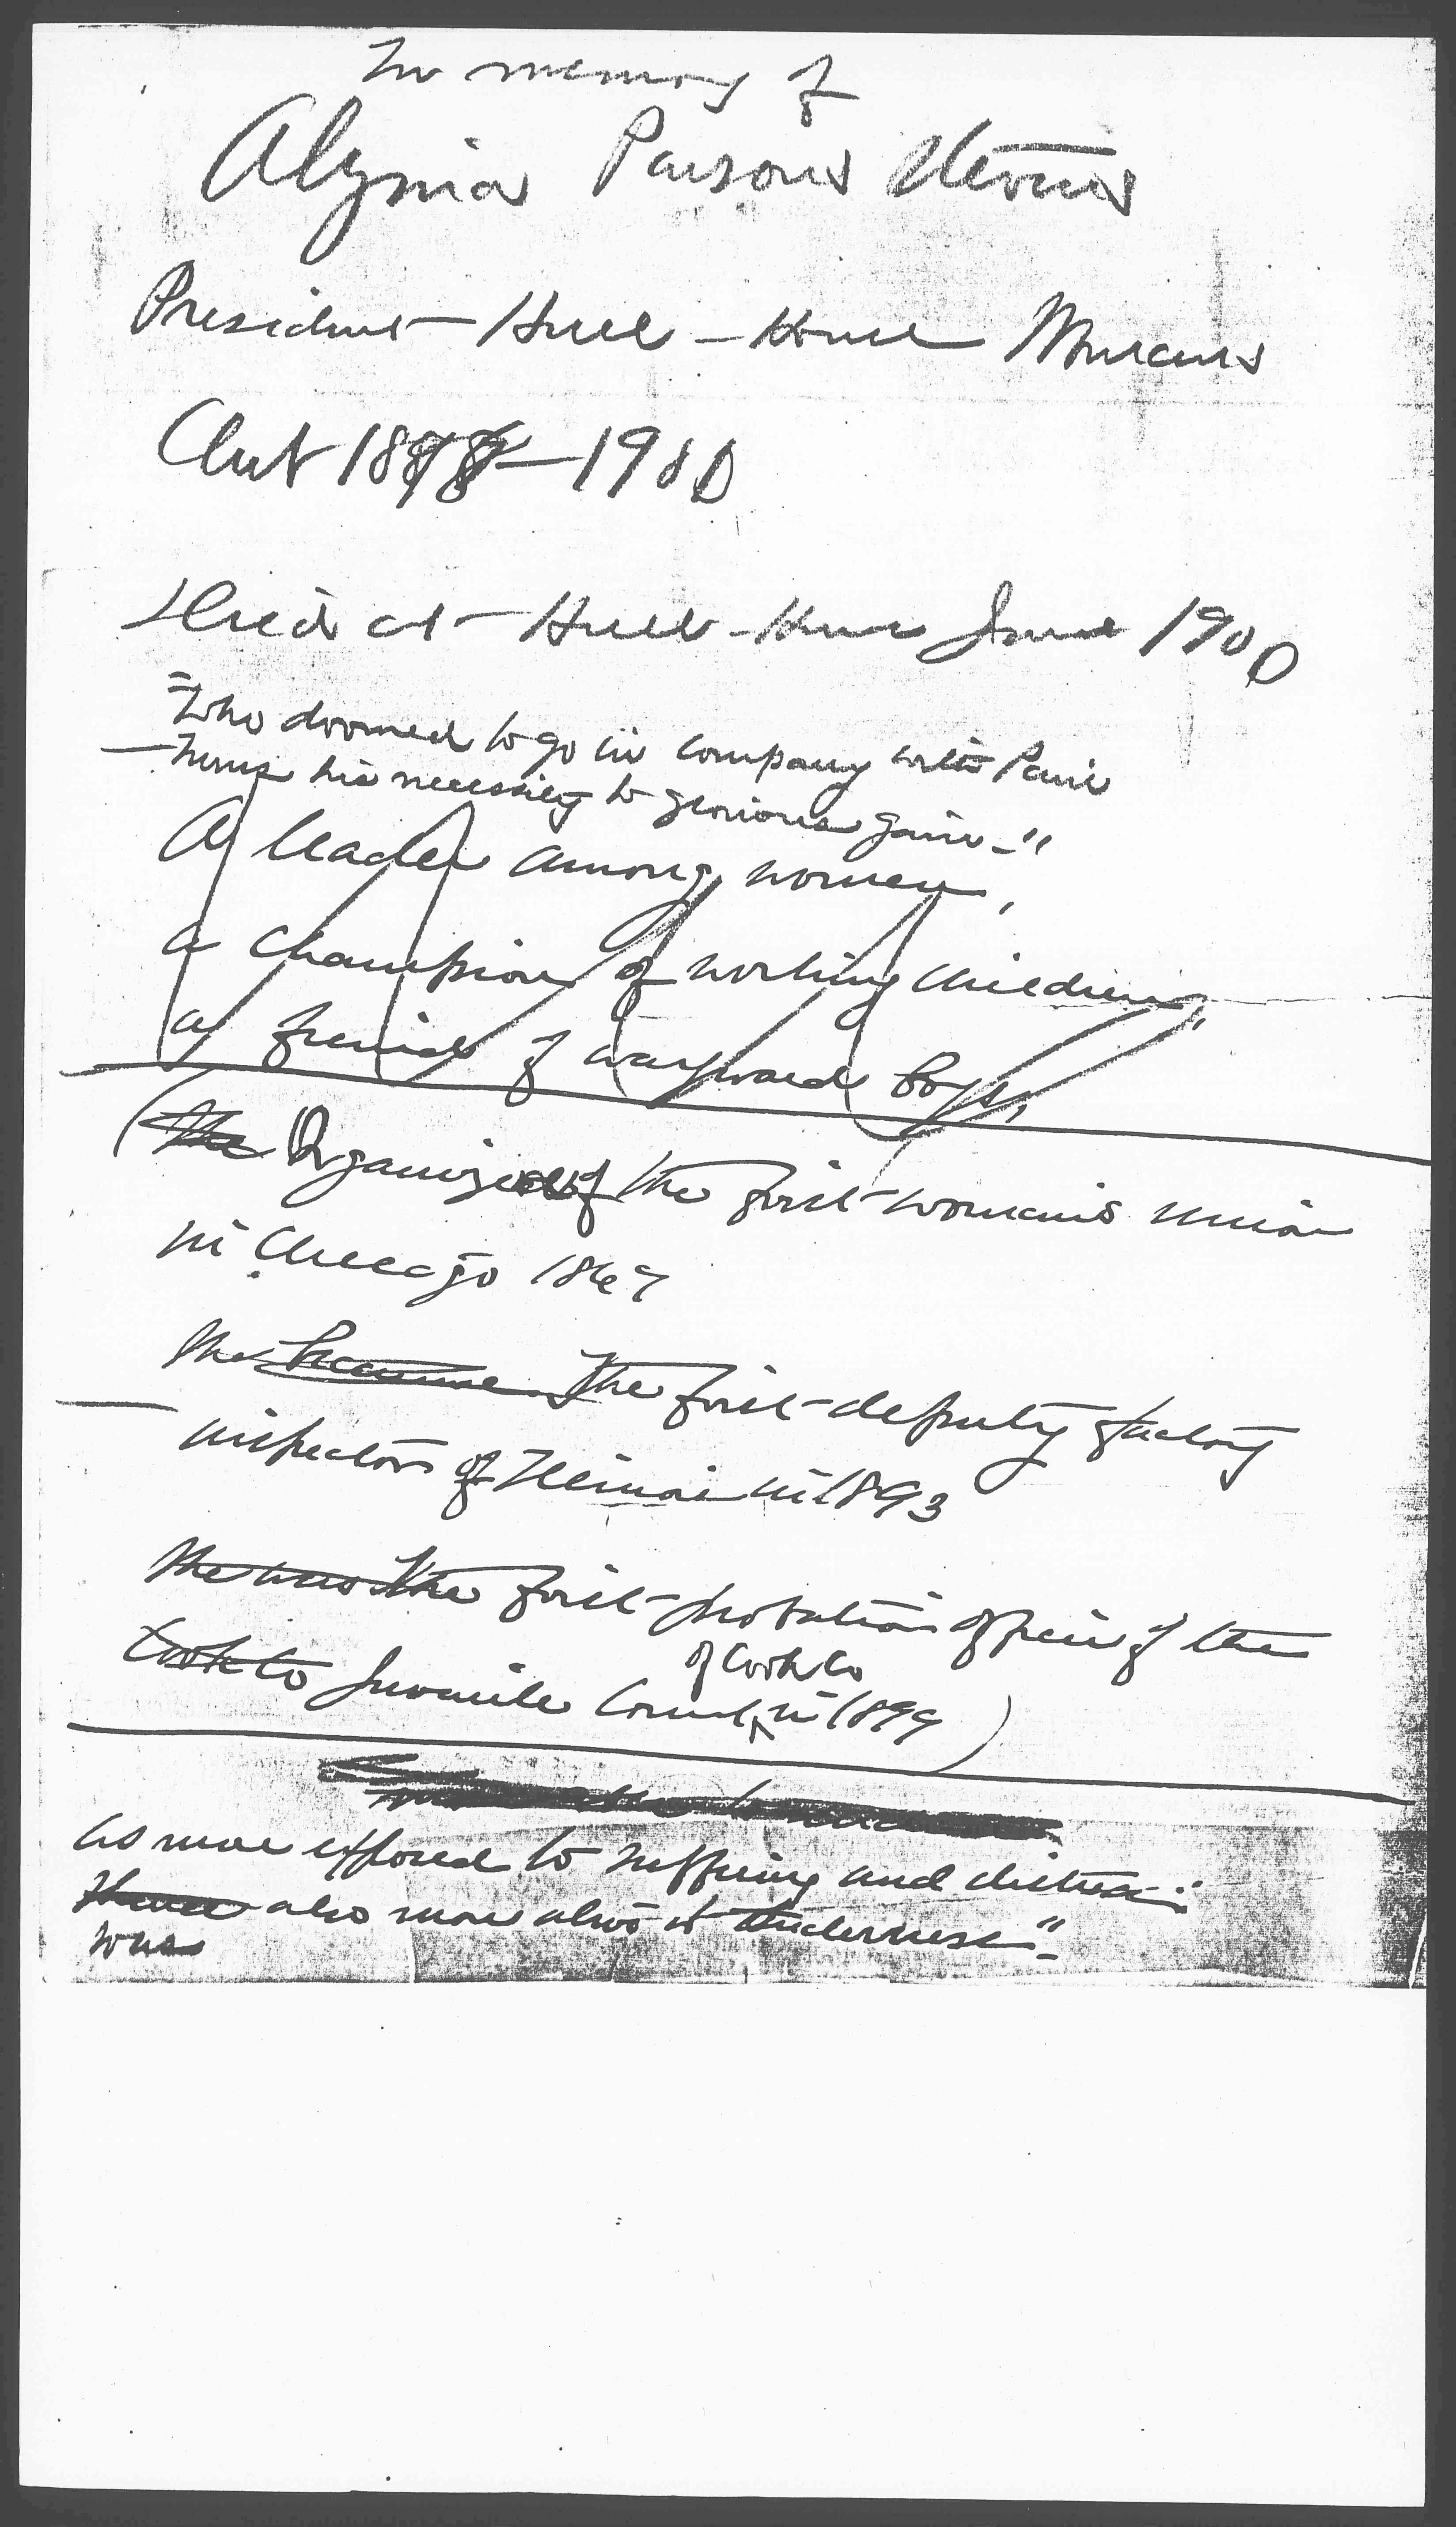 In memory of
Alzina Parsons Stevens
President Hull-House Womans
Club 1898-1900
Died at Hull-House June 1900
"Who doomed to go in company with Pain
Turns his necessity to glorious gain-"
A leader among women,
a champion of working children,
a friend of wayward boys,
(The Organized of the first woman's union
in Chicago 1867
She became The first deputy factory
inspector of Illinois in 1893
She was The first probation officer of the
of Cook Co
Cook Co Juvenile Court in 1899)
As more exposed to suffering and distress:
Thence also more alive to tenderness"-
was